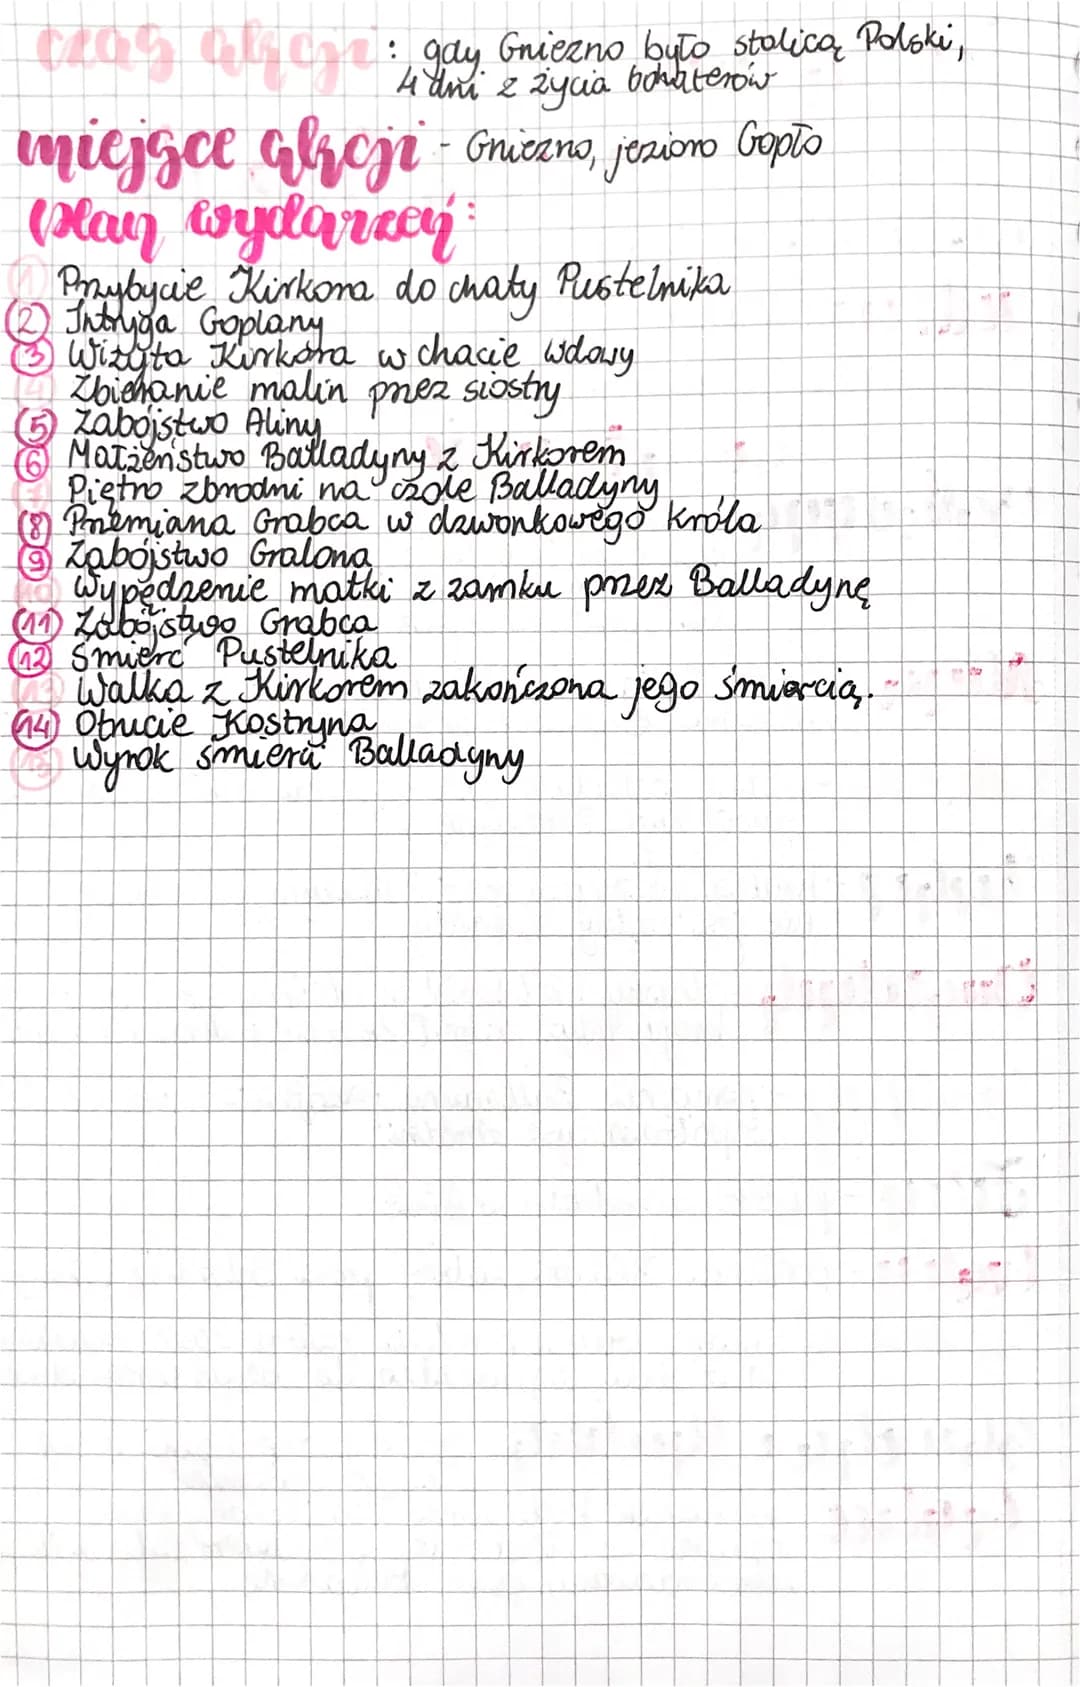 czas akcji: gdy Gniezno było stolicą Polski,
4 dni z życia bohaterów
miejsce akcji - Gniezno, jezioro Gopło
plan wydarzeń:
1 Przybycie Kirkora do chaty Pustelnika
2 Intryga Goplany
3 Wizyta Kirkora w chacie wdowy
4 Zbieranie malin przez siostry
5 Zabójstwo Aliny
6 Małżeństwo Balladyny z Kirkorem
7 Piętno zbrodni na czole Balladyny
8 Przemiana Grabca w dzwonkowego króla
9 Zabójstwo Gralona
10 Wypędzenie matki z zamku przez Balladynę
11 Zabójstwo Grabca
12 Śmierć Pustelnika
13 Walka z Kirkorem zakończona jego śmiercią.
14 Otrucie Kostryna
15 Wyrok śmierci Balladyny